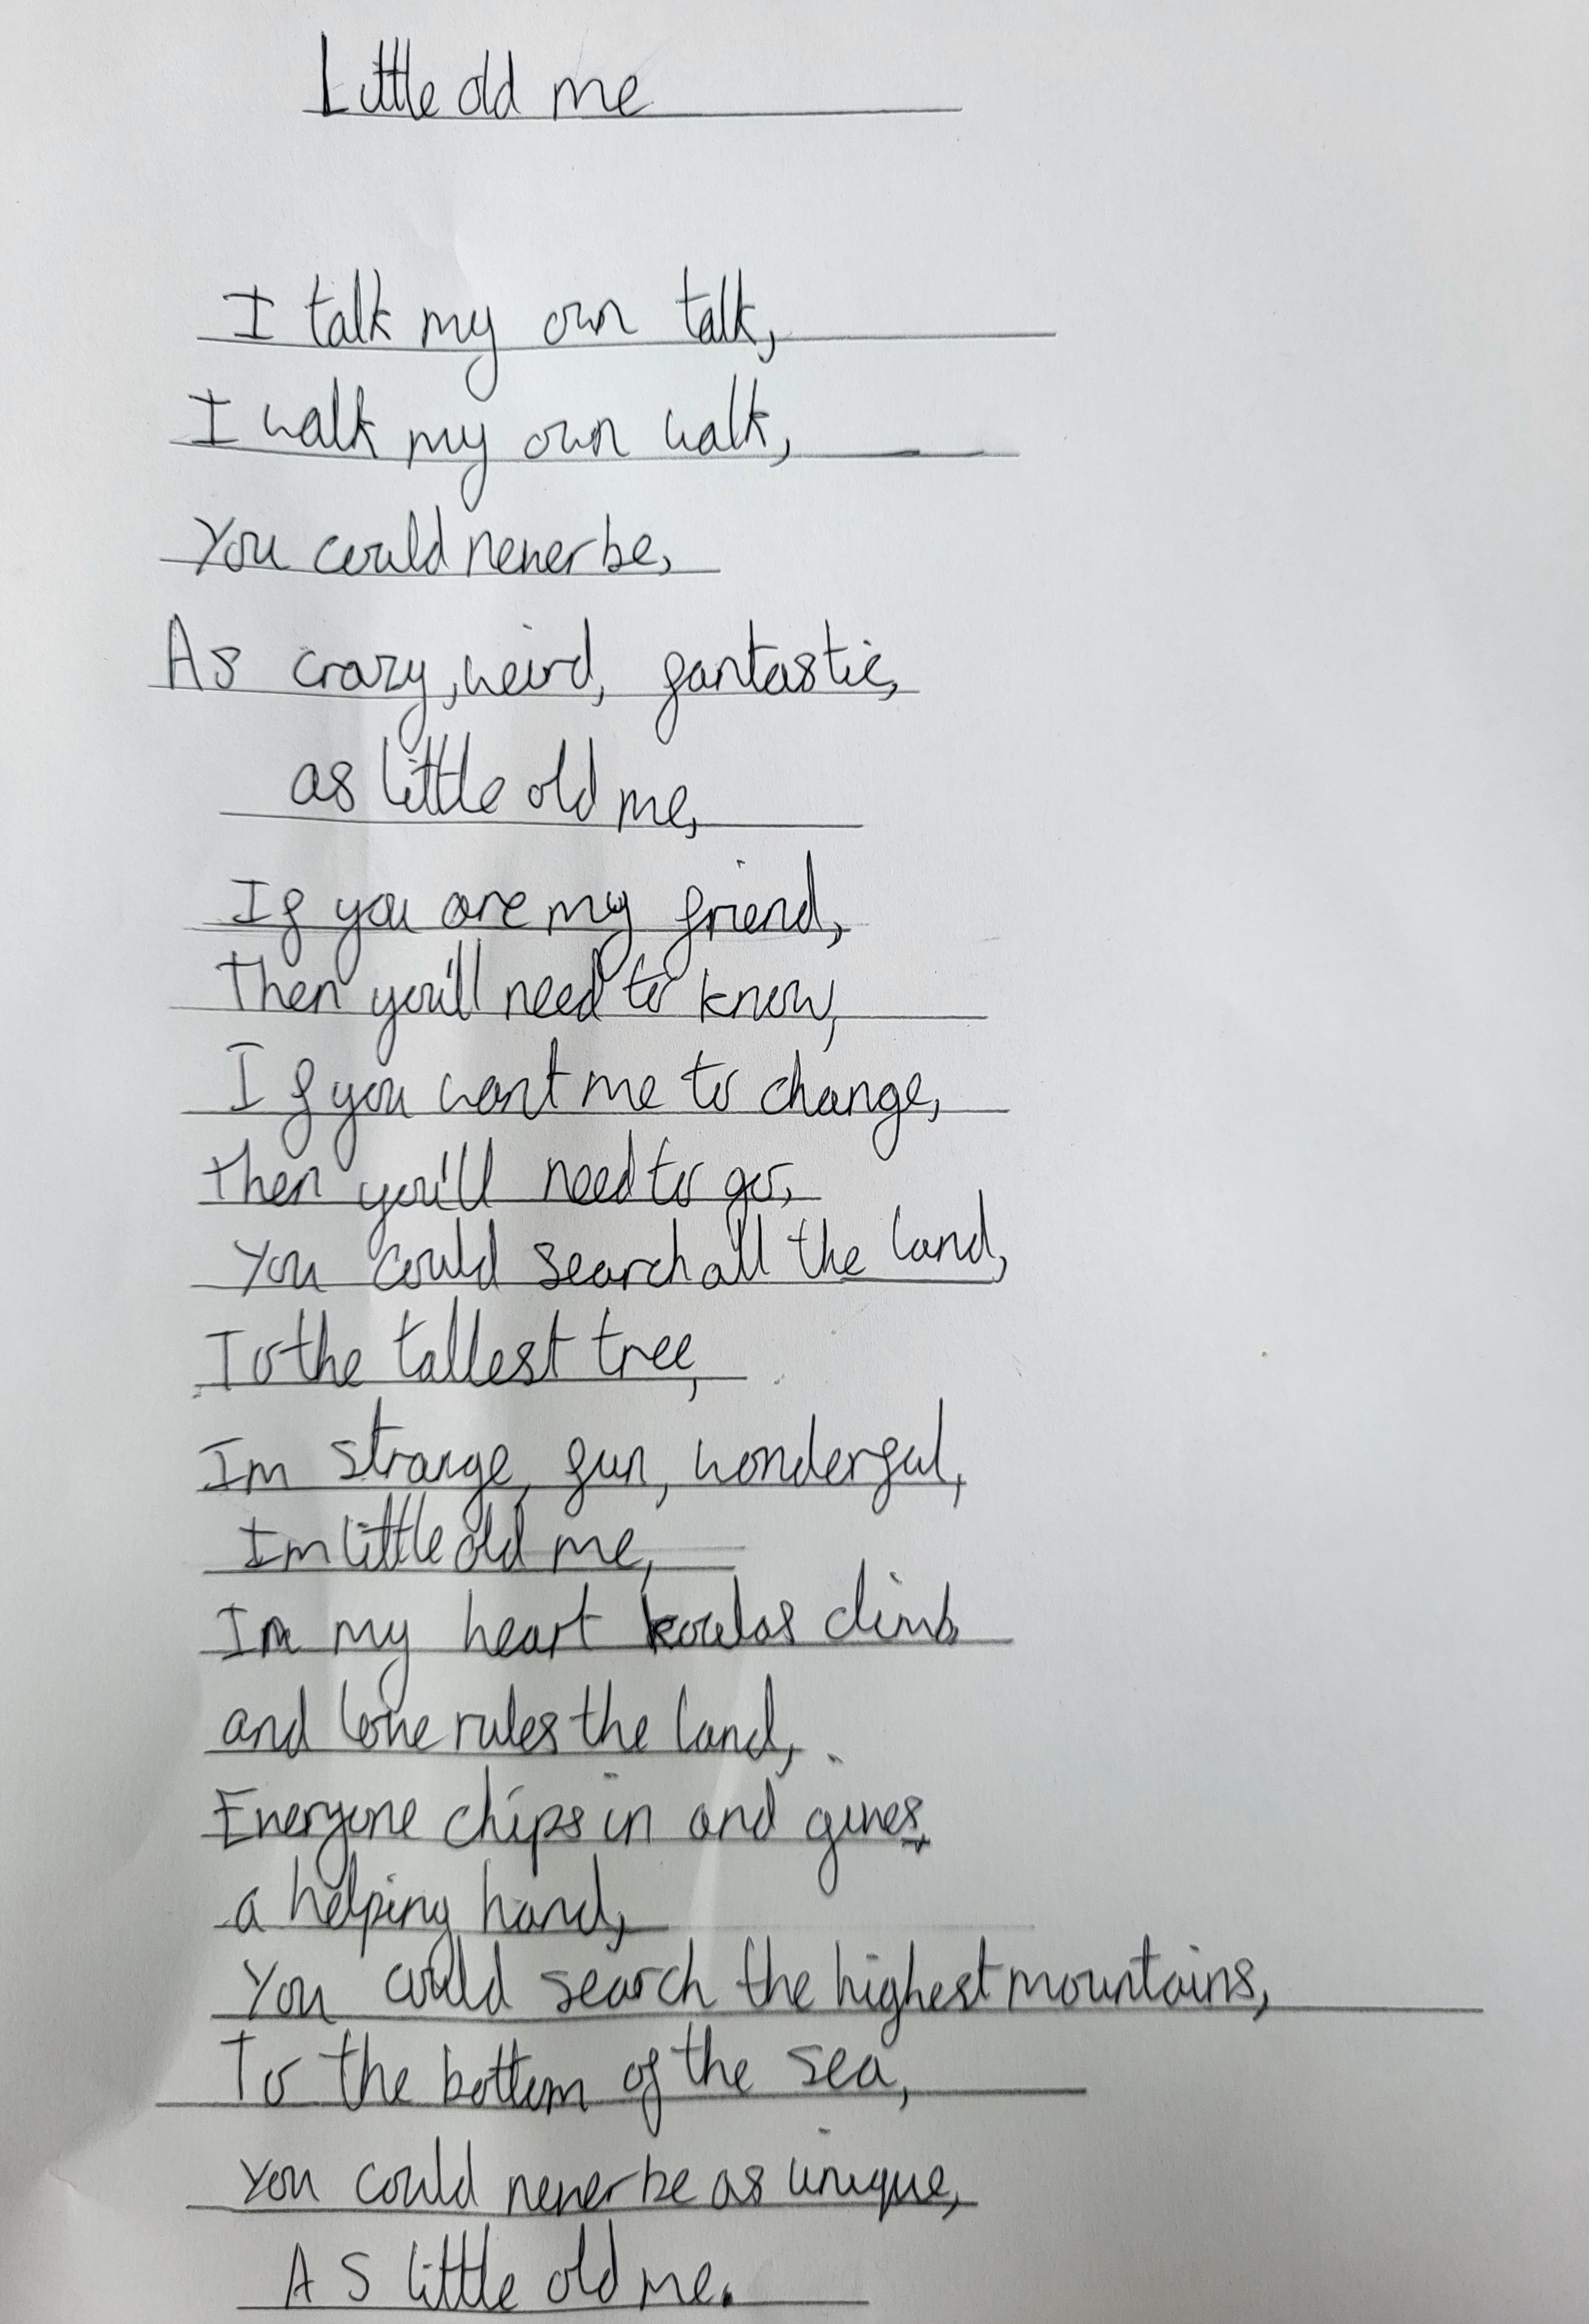 Little old me
I talk my own talk,
I walk my own walk,
You could never be,
As crazy, weird, fantastic,
as little old me,
If you are my friend,
Then you'll need to know,
If you want me to change,
then you'll need to go,
You could search all the land,
To the tallest tree,
Im strange, fun, wonderful,
Im little old me,
In my heart koalas climb
and love rules the land,
Everyone chips in and gives
a helping hand,
You could search the highest mountains,
To the bottom of the sea,
You could never be as unique,
As little old me.